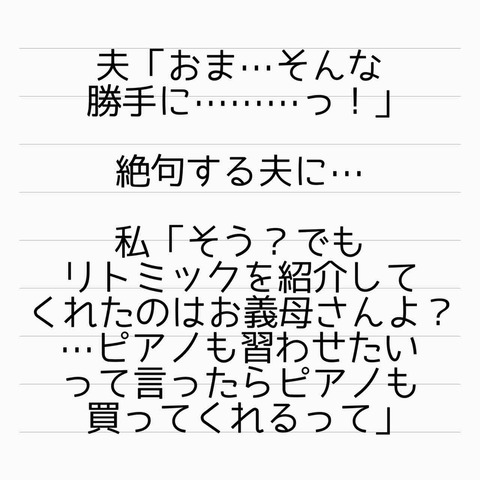 夫「おま…そんな
勝手に………っ！」
絶句する夫に…
私「そう？でも
リトミックを紹介して
くれたのはお義母さんよ？
…ピアノも習わせたい
って言ったらピアノも
買ってくれるって」